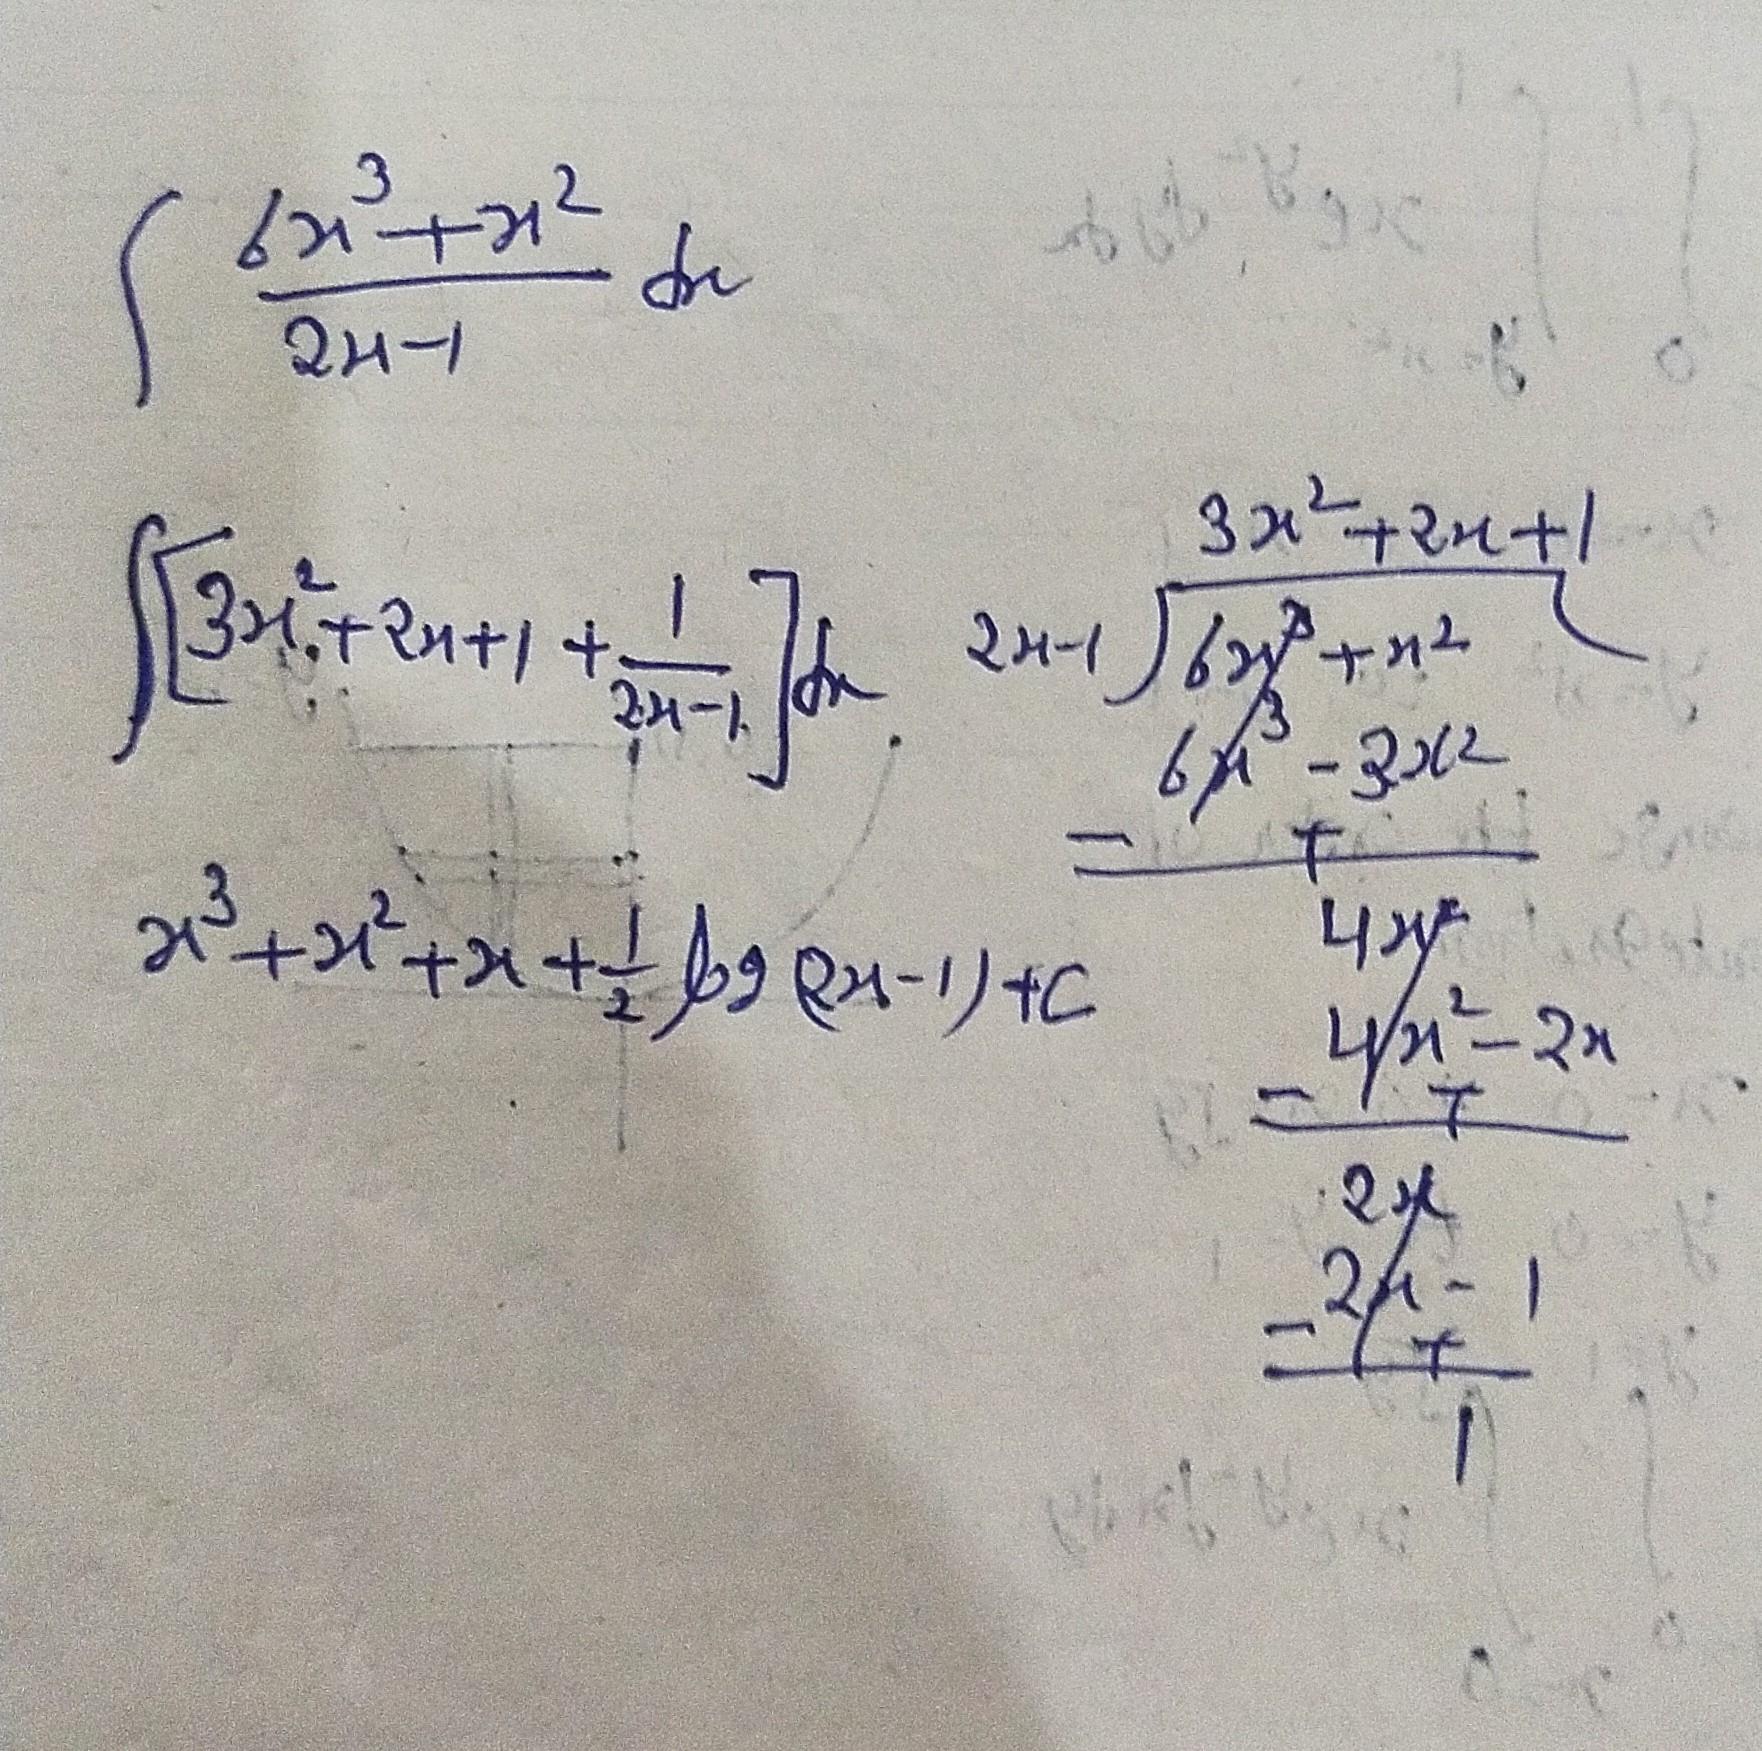 ∫ (6x³+x²)/(2x-1) dx
∫[3x²+2x+1+1/(2x-1)]dx
x³+x²+x+1/2 log(2x-1)+c
3x²+2x+1
2x-1)6x³+x²
6x³-3x²
- +
4x²
4x²-2x
- +
2x
2x-1
- +
1